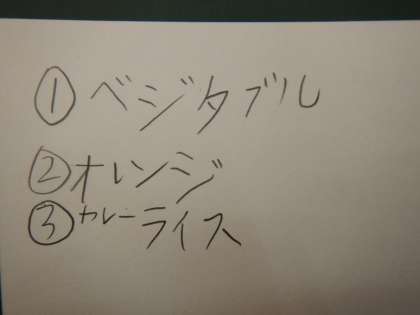 ①ベジタブル
②オレンジ
③カレーライス